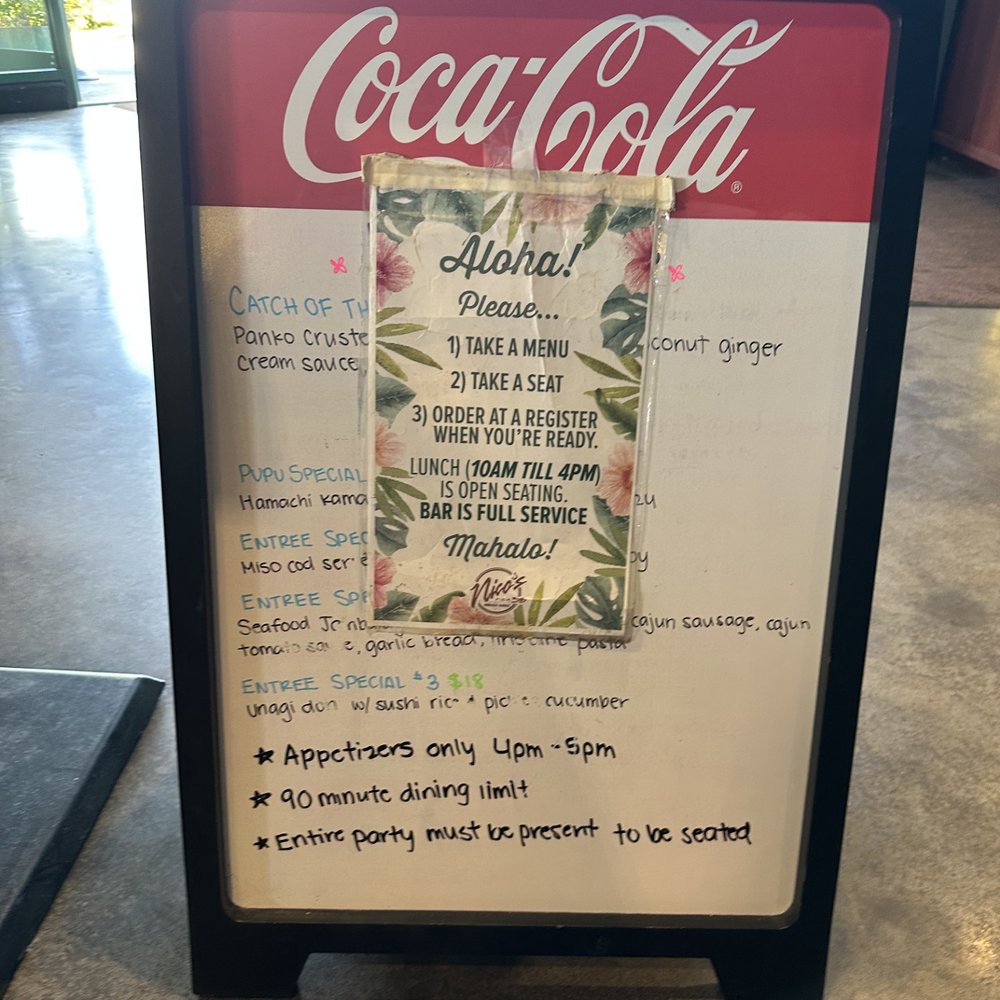 Coca-Cola
®
Aloha!
Please...
1) TAKE A MENU
2) TAKE A SEAT
3) ORDER AT A REGISTER
WHEN YOU'RE READY.
LUNCH (10AM TILL 4PM)
IS OPEN SEATING.
BAR IS FULL SERVICE
Mahalo!
Nico's
CATCH OF
Panko ginger
Cream sauce
PUPU SPECIAL
Hamachi
ENTREE
Miso cod
ENTREE
Seafood cajun sausage, cajun
garlic bread, pasta
ENTREE SPECIAL #3 $18
unagi don w/ sushi cucumber
★ Appetizers only 4pm - 5pm
★ 90 minute dining limit
★ Entire party must be present to be seated